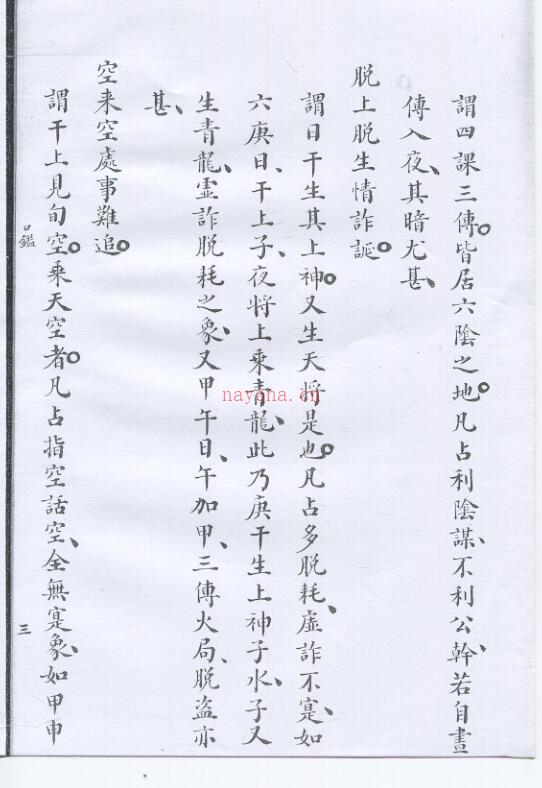 謂四課三傳皆居六陰之地凡占利陰謀不利公幹若自晝
傳入夜其暗尤甚
脱上脱生情詐誕
謂日干生其上神又生天将是也凡占多脱耗虛詐不寔如
六庚日干上子夜將上乘青龍此乃庚干生上神子水子又
生青龍虛詐脱耗之象又甲午日午加甲三傳火局脱盜亦
甚
空来空處事難追
謂干上見旬空乘天空者凡占指空話空全無寔象如甲申
口鑑
三
nayona.cn